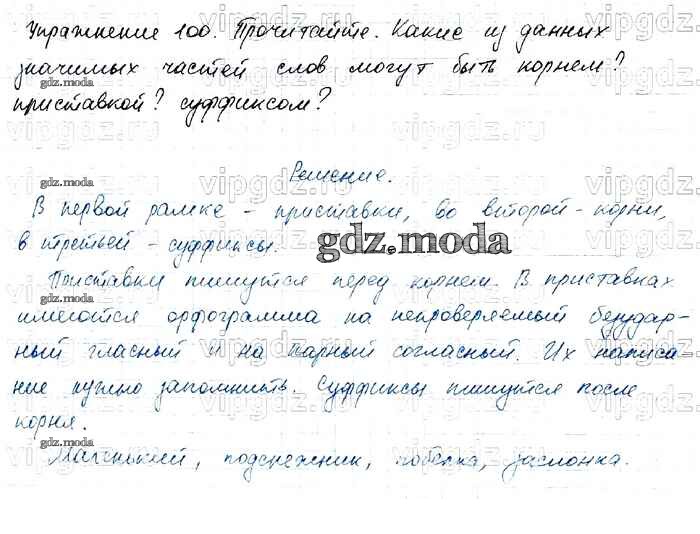 Упражнение 100. Прочитайте. Какие из данных
значимых частей слов могут быть корнем?
приставкой? суффиксом?
Решение.
В первой рамке - приставки, во второй - корни,
в третьей - суффиксы.
gdz.moda
Приставки пишутся перед корнем. В приставках
имеются орфограмма на непроверяемый безудар-
ный гласный и на парный согласный. Их написа-
ние нужно запомнить. Суффиксы пишутся после
корня.
Маленький, подснежник, побелка, заслонка.